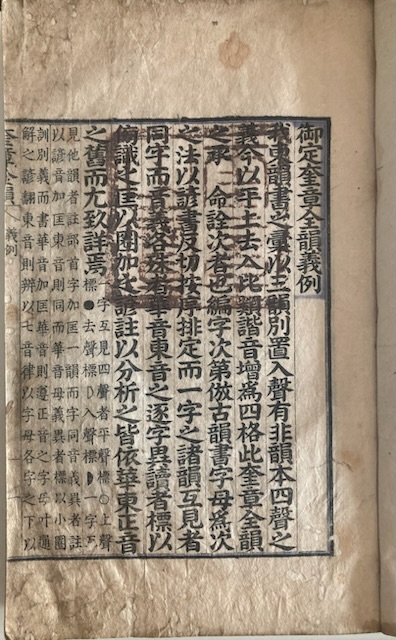 御定奎章全韻義例
我東韻書之彙以三韻別置入聲有非韻本四聲之
義今以平上去入比類諧音增爲四格此奎章全韻
之承 命詮次者也編字次第倣古韻書字母爲次
之法以諺書反切按序排定而一字之諸韻互見者
同字而義各殊有華音東音之逐字異讀者標以
識之匡以圈加之諺註以分析之皆依華東正音
之舊而尤致詳焉
一字互見四聲者平聲標○上聲
標●去聲標D入聲標◗一字互
見他韻者註部首字加匡一韻而字同音義異者註
以諺音加匡東音則同而華音母義異者標以小圈
訓別義而書華音加匡華音則遵正音之字母叶通
解之諺翻東音則辨以七音律以字母各字之下以
奎章全韻 義例